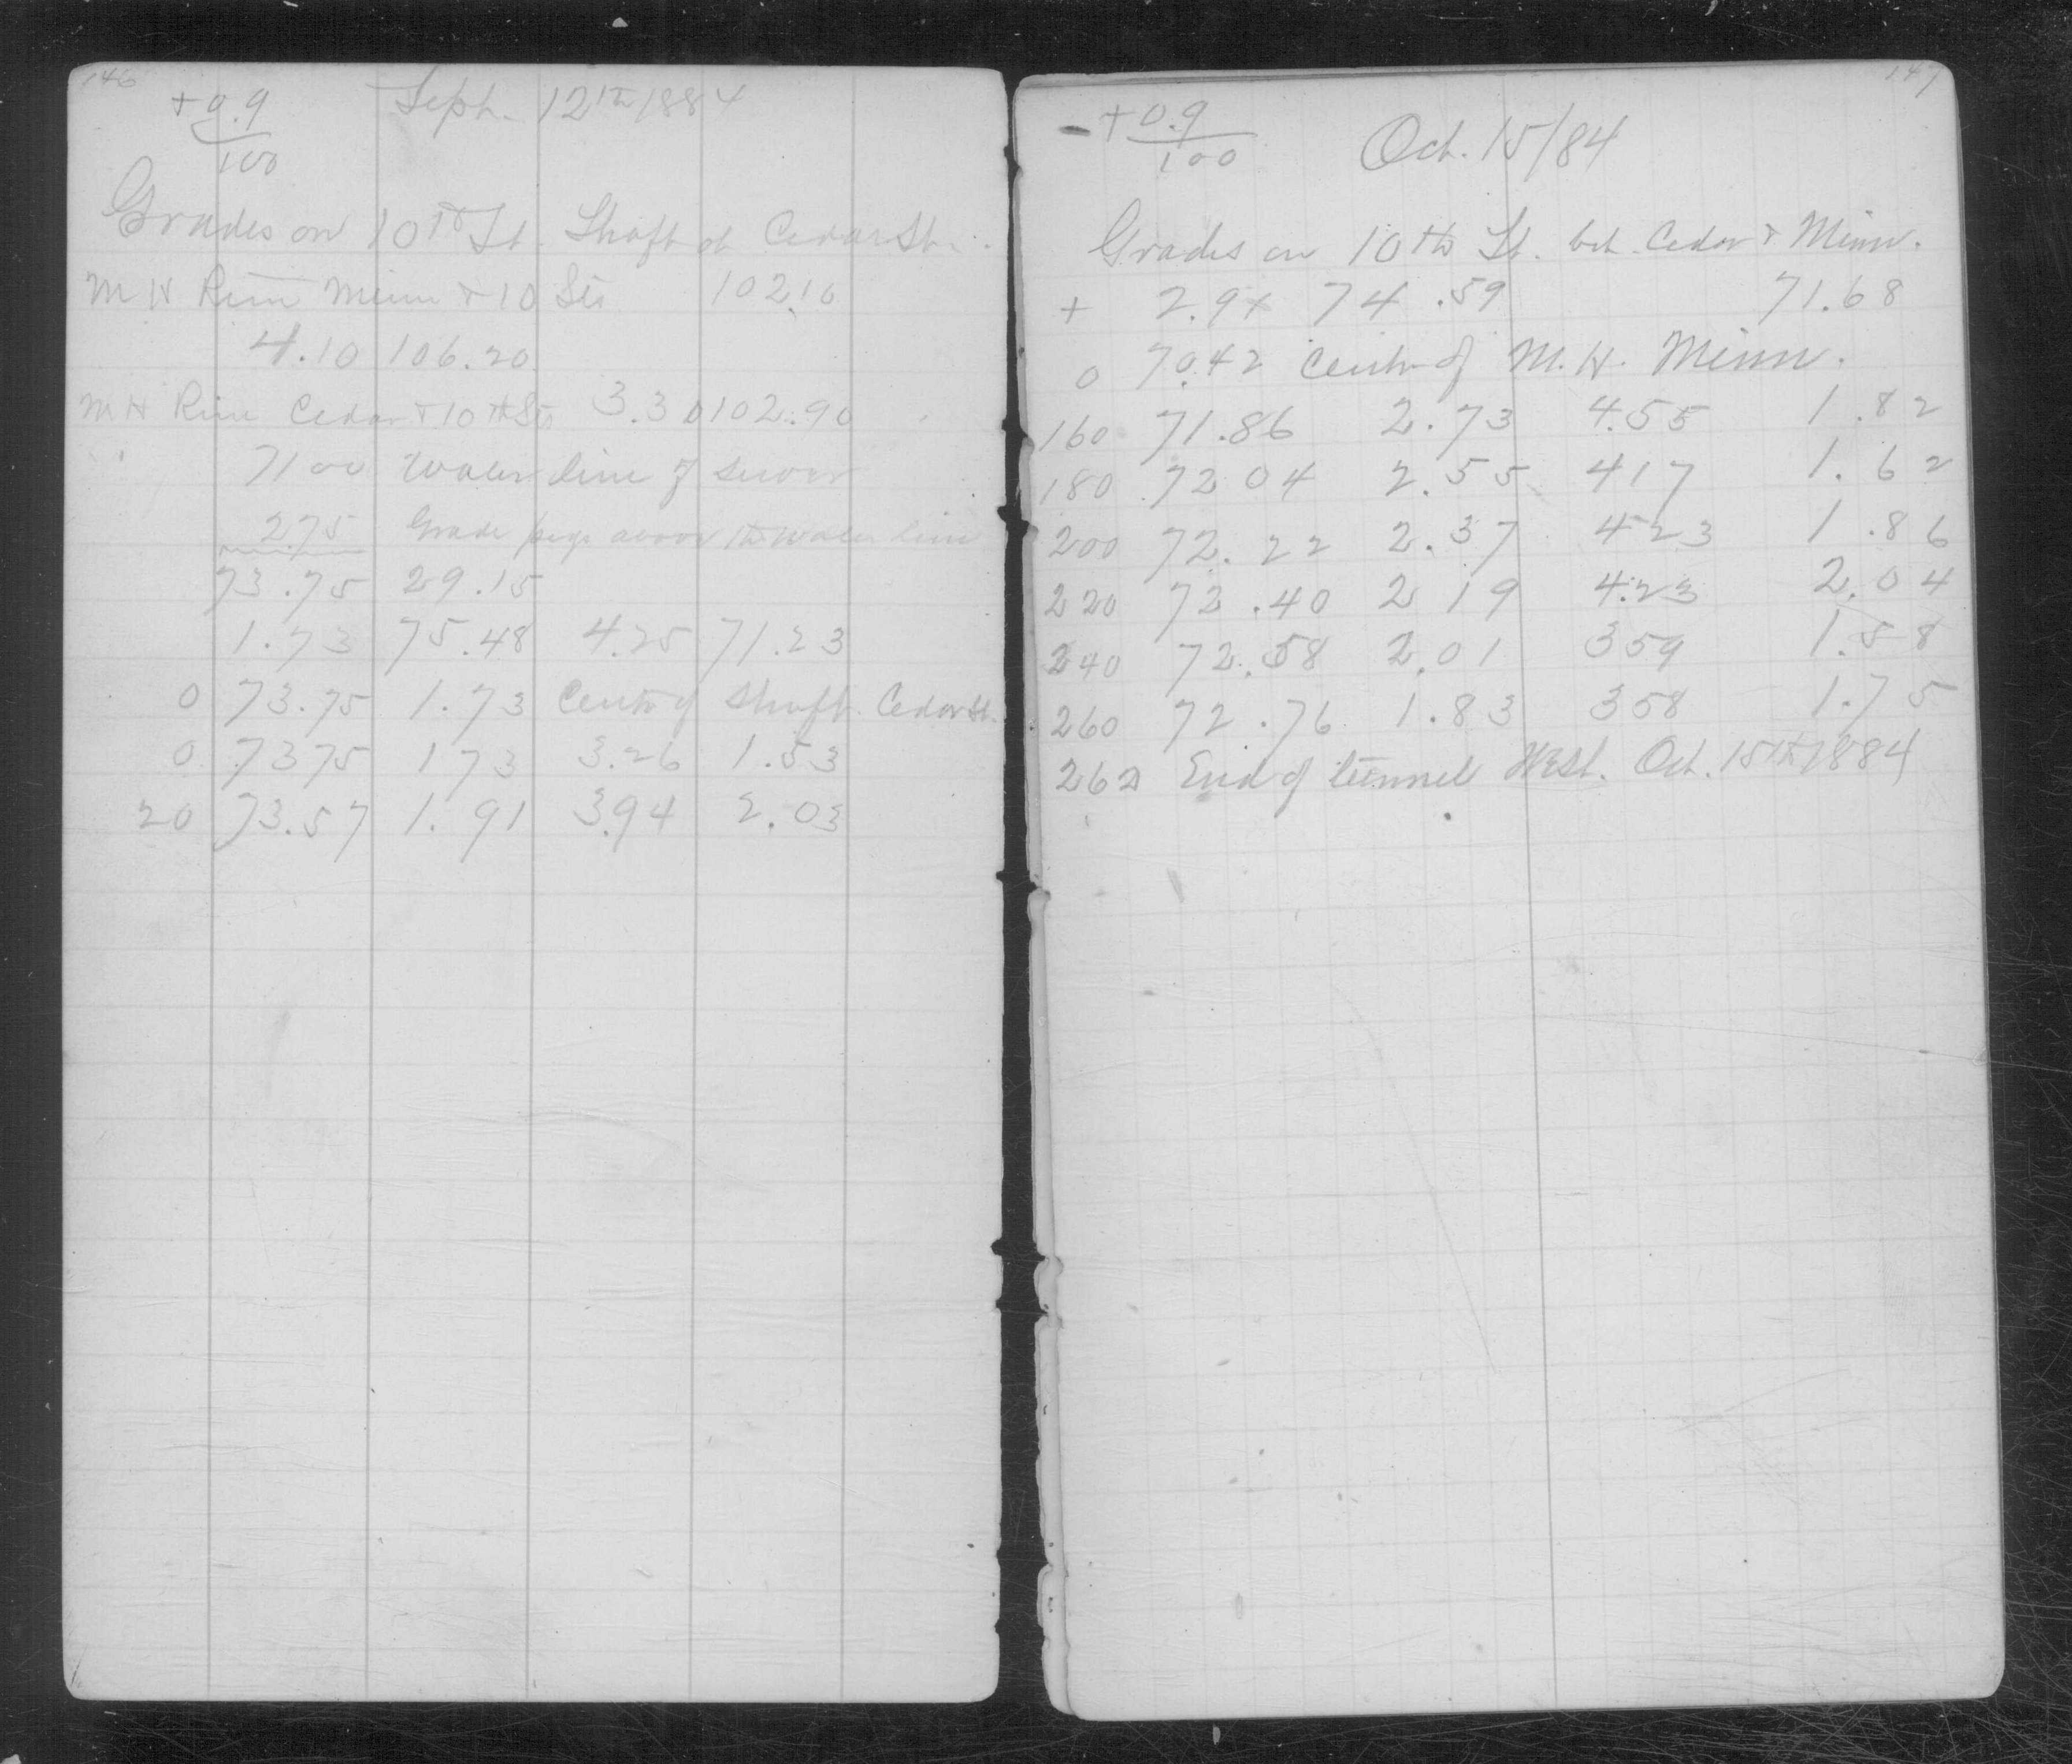 146
+0.9 Sept. 12th 1884
100
Grades on 10th St. Shaft at Cedar St.
M H Rim Minn & 10 Sts 102.10
4.10 106.20
M H Rim Cedar & 10th Sts 3.30 102.90
71 00 Water line of sewer
2.75 Grade pegs above the water line
73.75 29.15
1.73 75.48 4.25 71.23
0 73.75 1.73 Center of Shaft Cedar St.
0 73 75 1 73 3.26 1.53
20 73.57 1.91 3.94 2.03
147
+0.9 Oct. 15/84
100
Grades on 10th St. bet. Cedar & Minn.
+ 2.91 74.59 71.68
0 70.42 Center of M.H. Minn.
160 71.86 2.73 4.55 1.82
180 72 04 2.55 4 17 1.62
200 72.22 2.37 4 23 1.86
220 72.40 2 19 4.23 2.04
240 72.58 2.01 3 59 1.58
260 72.76 1.83 3 58 1.75
262 End of tunnel West. Oct. 15th 1884